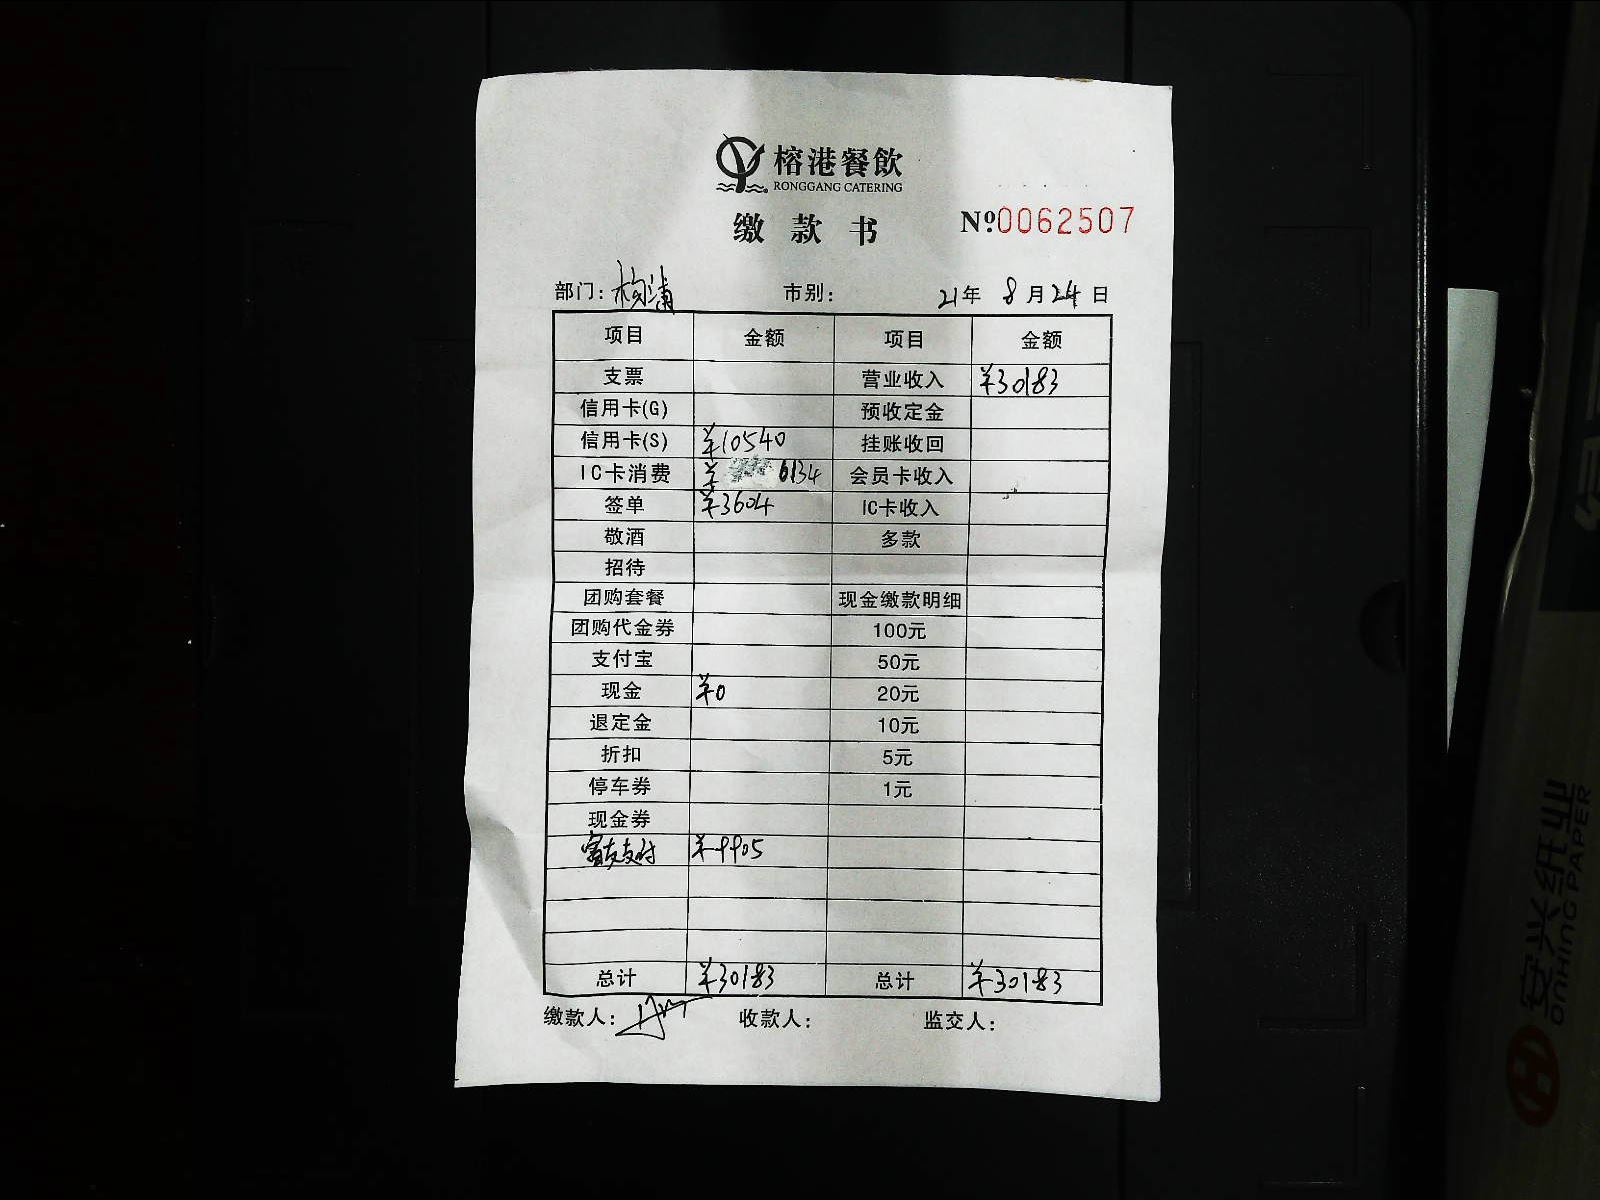 榕港餐飲
RONGGANG CATERING
缴款书 Nº0062507
部门: 杨浦 市别: 21年 8月24日
项目 金额 项目 金额
支票 营业收入 ¥30183
信用卡(G) 预收定金
信用卡(S) ¥10540 挂账收回
IC卡消费 ¥ 6134 会员卡收入
签单 ¥3604 IC卡收入
敬酒 多款
招待
团购套餐 现金缴款明细
团购代金券 100元
支付宝 50元
现金 ¥0 20元
退定金 10元
折扣 5元
停车券 1元
现金券
支付 ¥9905
总计 ¥30183 总计 ¥30183
缴款人: 收款人: 监交人:
安兴纸业
ONHING PAPER